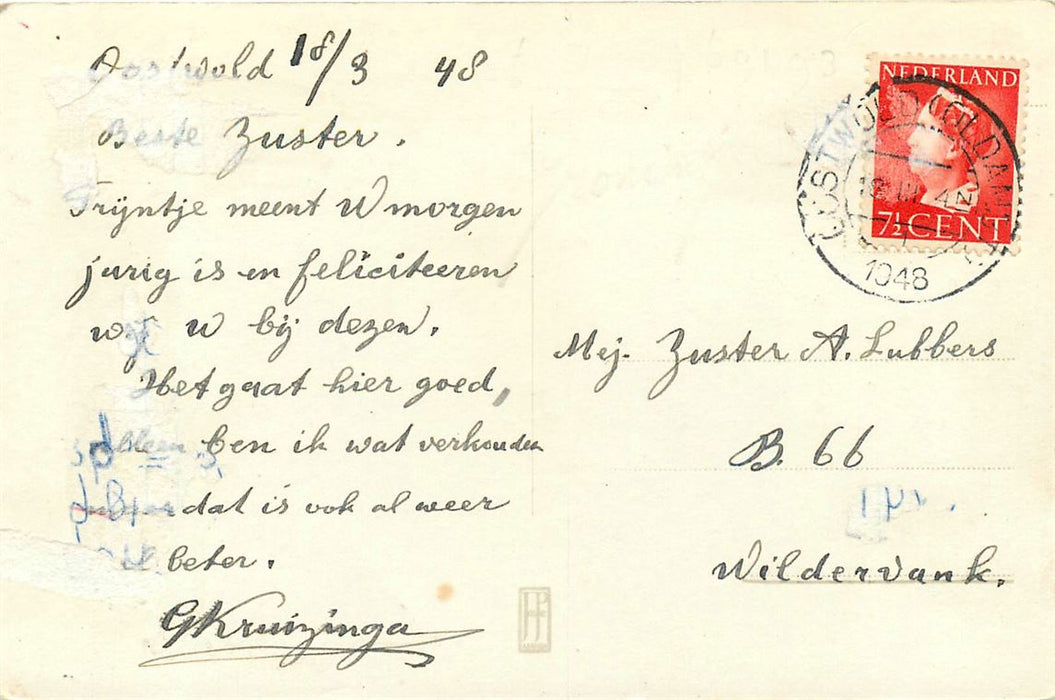 Oostwold 18/3 48
Beste Zuster.
Trijntje meent U morgen
jarig is en feliciteeren
wij U bij dezen.
Het gaat hier goed,
alleen ben ik wat verkouden
dat is ook al weer
beter.
GKruizinga
NEDERLAND
7½ CENT
OOSTWOLD (OLDAMBT)
18 III 4
1948
Mej. Zuster A. Lubbers
B. 66
Wildervank.